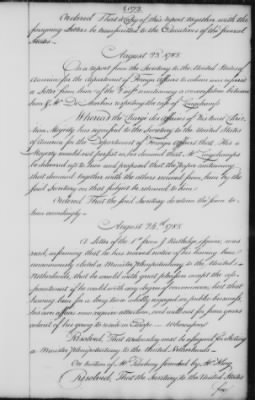 Ordered That a Copy of this report together with the
foregoing Letters be transmitted to the Executives of the several
States.
August 23d 1785
On a report from the Secretary to the United States of
America for the department of Foreign Affairs to whom was referred
a Letter from him of the mentioning a conversation between
him & Mr De Marbois respecting the case of Longchamps
Whereas the Chargé des Affaires of his most Chris-
tian Majesty has signified to the Secretary to the United States
of America for the Department of Foreign Affairs that His
Majesty would not persist in his demand that Mr Longchamps
be delivered up to him and proposed that the Paper containing
that demand together with the others received from him by the
said Secretary on that subject be returned to him
Ordered That the said Secretary do return the same to
him accordingly
August 24th 1785
A Letter of the 1st from J. Rutledge Esquire, was
read, informing that he has received notice of his having been
unanimously elected a Minister Plenipotentiary to the United
Netherlands, that he would with great pleasure accept the ap-
pointment if he could with any degree of convenience, but that
having been for a long time wholly engaged in public business,
his own affairs now require attention, and will not for some years
admit of his going to reside in Europe. Whereupon
Resolved, That Wednesday next be assigned for electing
a Minister Plenipotentiary to the United Netherlands
On motion of Mr Pinckney seconded by Mr King
Resolved, That the Secretary to the United States
for